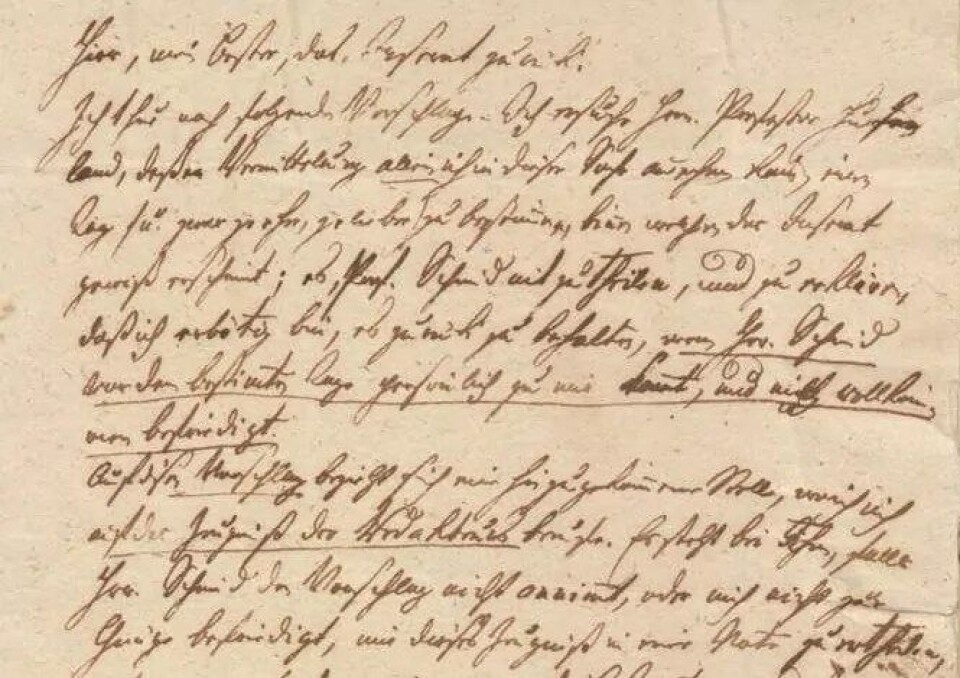 Hier, mein Bester, das Inserat zurück.
Ich thue noch folgende Vorschläge. Ich ersuche Hrn. Professor Hufe
land, deßen Vermittelung allein ich in dieser Sache annehmen kann, einen
Tag zu bestimmen, binnen welchen das Inserat
gewiß erscheint; es Prof. Schmid mitzutheilen, und zu erklären,
daß ich erbötig bin, es zurück zu behalten, wenn Hr. Schmid
vor dem bestimmten Tage persönlich zu mir kommt, und mich vollkom
men befriedigt.
Auf diesen Vorschlag bezieht sich eine hinzugekommene Stelle, worin ich
auf das Zeugniß des Redakteurs berufe. Es steht bei Ihnen, falls
Hr. Schmid den Vorschlag nicht annimmt, oder mich nicht zur
Gnüge befriedigt, mir dieses Zeugniß in einer Note zu ertheilen,